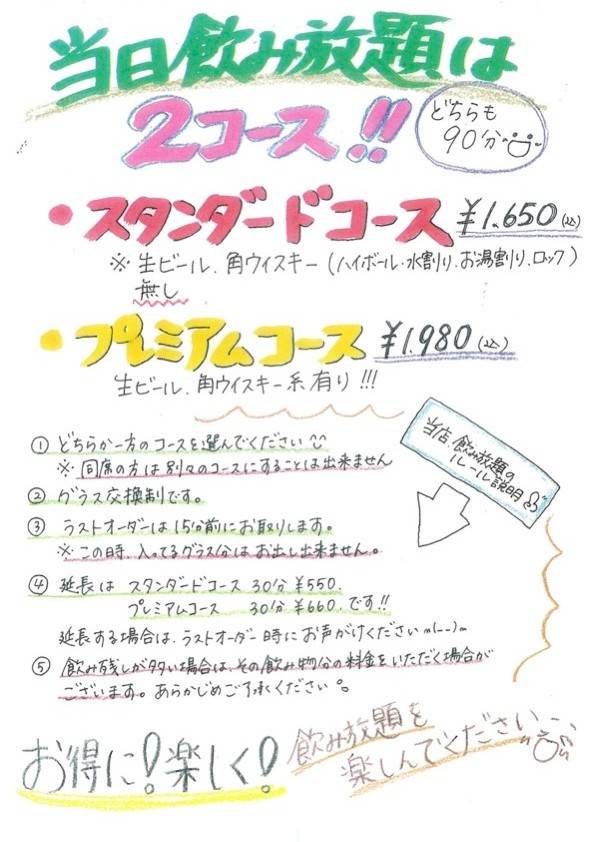 当日飲み放題は
2コース!!
どちらも
90分
・スタンダードコース ¥1,650(込)
※生ビール、角ウイスキー(ハイボール・水割り、お湯割り、ロック)
無し
・プレミアムコース ¥1,980(込)
生ビール、角ウイスキー系有り!!!
当店、飲み放題の
ルール説明
① どちらか一方のコースを選んでください
※同席の方は別々のコースにすることは出来ません
② グラス交換制です。
③ ラストオーダーは15分前にお取りします。
※この時、入ってるグラス分はお出し出来ません。
④ 延長は スタンダードコース 30分 ¥550、
プレミアムコース 30分 ¥660、です!!
延長する場合は、ラストオーダー時にお声がけくださいm(__)m
⑤ 飲み残しが多い場合は、その飲み物分の料金をいただく場合が
ございます。あらかじめご了承ください。
お得に!楽しく!
飲み放題を
楽しんでください